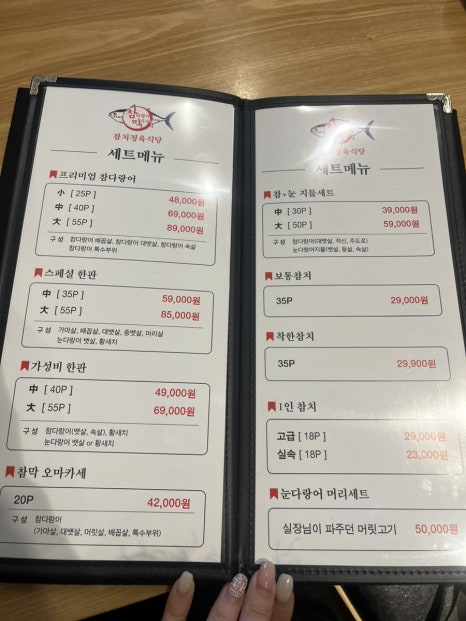 참치정육식당
세트메뉴
프리미엄 참다랑어
小 [ 25P ] 48,000원
中 [ 40P ] 69,000원
大 [ 55P ] 89,000원
구 성 참다랑어 배꼽살, 참다랑어 대뱃살, 참다랑어 속살
참다랑어 특수부위
스페셜 한판
中 [ 35P ] 59,000원
大 [ 55P ] 85,000원
구 성 가마살, 배꼽살, 대뱃살, 중뱃살, 머리살
눈다랑어 뱃살, 황새치
가성비 한판
中 [ 40P ] 49,000원
大 [ 55P ] 69,000원
구 성 참다랑어(뱃살, 속살), 황새치
눈다랑어 뱃살 or 황새치
참막 오마카세
20P 42,000원
구 성 참다랑어
(가마살, 대뱃살, 머릿살, 배꼽살, 특수부위)
정육식당
세트메뉴
참+눈 지믈세트
中 [ 30P ] 39,000원
大 [ 50P ] 59,000원
구 성 참다랑어(대뱃살, 적신, 주도로)
눈다랑어지믈(뱃살, 등살, 속살)
보통참치
35P 29,000원
착한참치
35P 29,900원
1인 참치
고급 [ 18P ] 29,000원
실속 [ 18P ] 23,000원
눈다랑어 머리세트
실장님이 파주던 머릿고기 50,000원